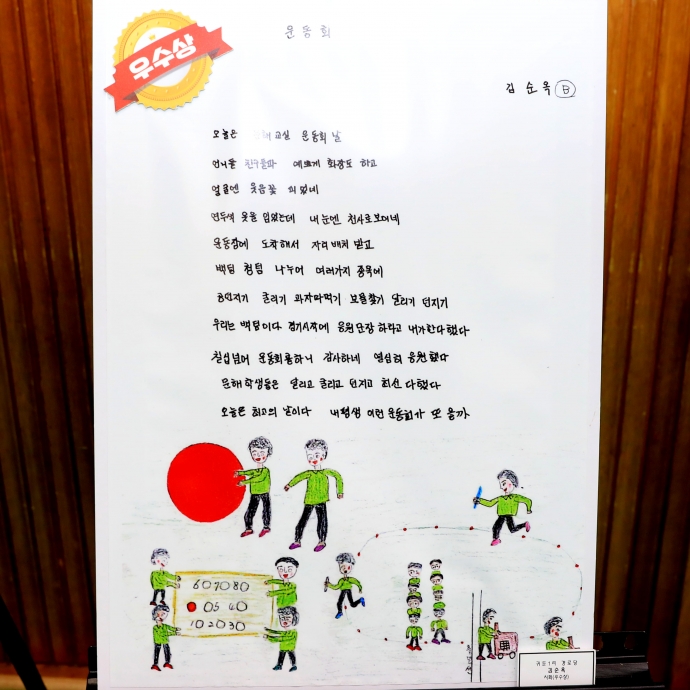 우수상
운동회
김순옥 B
오늘은 교실 운동회 날
언니들 친구들과 예쁘게 화장도 하고
얼굴엔 웃음꽃 피었네
연두색 옷을 입었는데 내 눈엔 천사로보이네
운동장에 도착해서 자리 배치 받고
백팀 청팀 나누어 여러가지 종목에
공던지기 굴리기 과자따먹기 보물찾기 달리기 던지기
우리는 백팀이다 경기시작에 응원단장 하라고 내가한다했다
칠십넘어 운동회를하니 감사하네 열심히 응원했다
문해 학생들은 달리고 굴리고 던지고 최선 다했다
오늘은 최고의 날이다 내평생 이런 운동회가 또 올까
607080
05 40
102030
김순옥
시화(우수상)